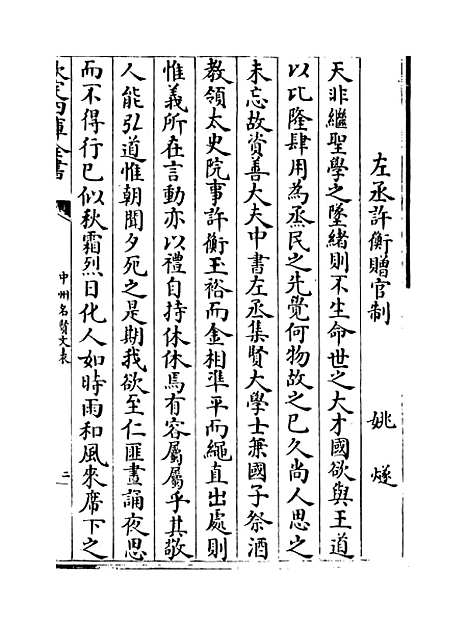 左丞許衡贈官制 姚燧
天非繼聖學之墜緒則不生命世之大才國欲與王道
以比隆肆用為烝民之先覺何物故之已久尚人思之
未忘故資善大夫中書左丞集賢大學士兼國子祭酒
教領太史院事許衡玉裕而金相準平而繩直出處則
惟義所在言動亦以禮自持休休焉有容屬屬乎其敬
人能弘道惟朝聞夕死之是期我欲至仁匪晝誦夜思
而不得行已似秋霜烈日化人如時雨和風來席下之
欽定四庫全書
中州名賢文表
二